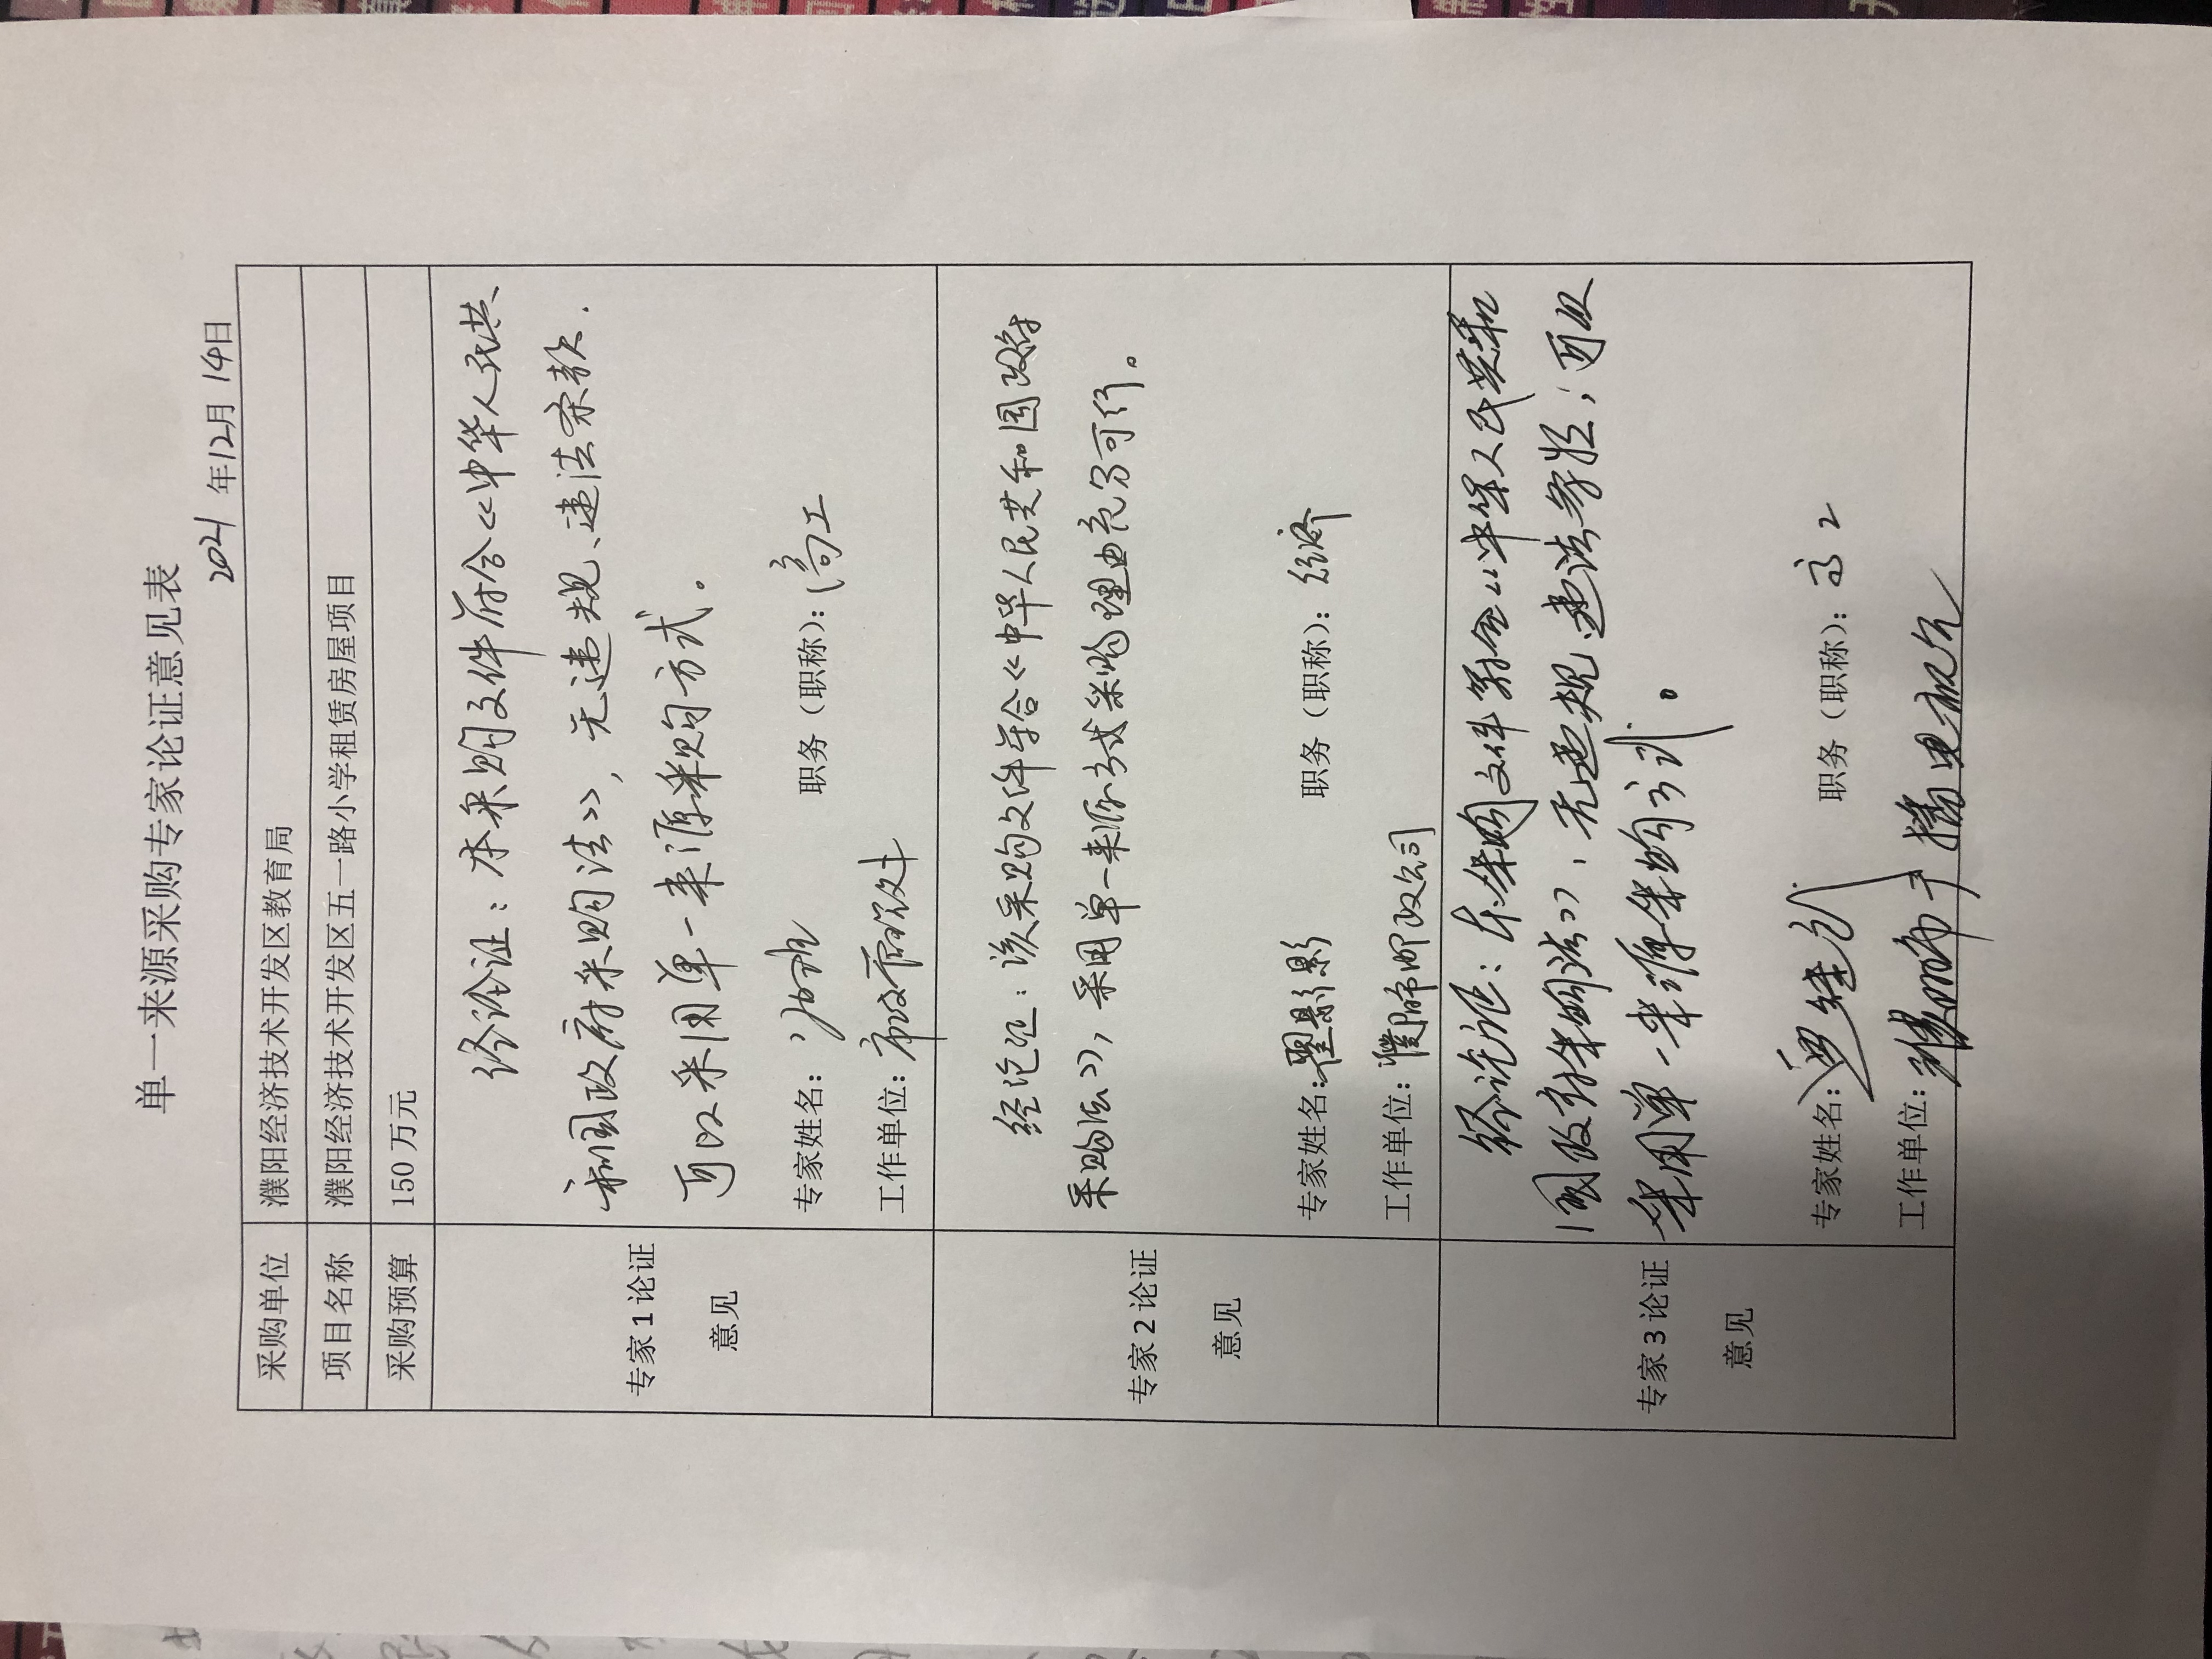 单一来源采购专家论证意见表
2021年12月14日
采购单位 濮阳经济技术开发区教育局
项目名称 濮阳经济技术开发区五一路小学租赁房屋项目
采购预算 150万元
专家1论证
意见
经论证：本采购文件符合《中华人民共
和国政府采购法》，无违规、违法条款.
可以采用单一来源采购方式。
专家姓名： 职务（职称）：高工
工作单位：市政
专家2论证
意见
经论证：该采购文件符合《中华人民共和国政府
采购法》，采用单一来源方式采购理由充分可行。
专家姓名：翟影影 职务（职称）：经济
工作单位：濮阳市邮政公司
专家3论证
意见
经论证：本采购文件符合《中华人民共和
国政府采购法》，无违规、违法条款，可以
采用单一来源采购方式。
专家姓名： 职务（职称）：高工
工作单位：濮阳市广播电视台